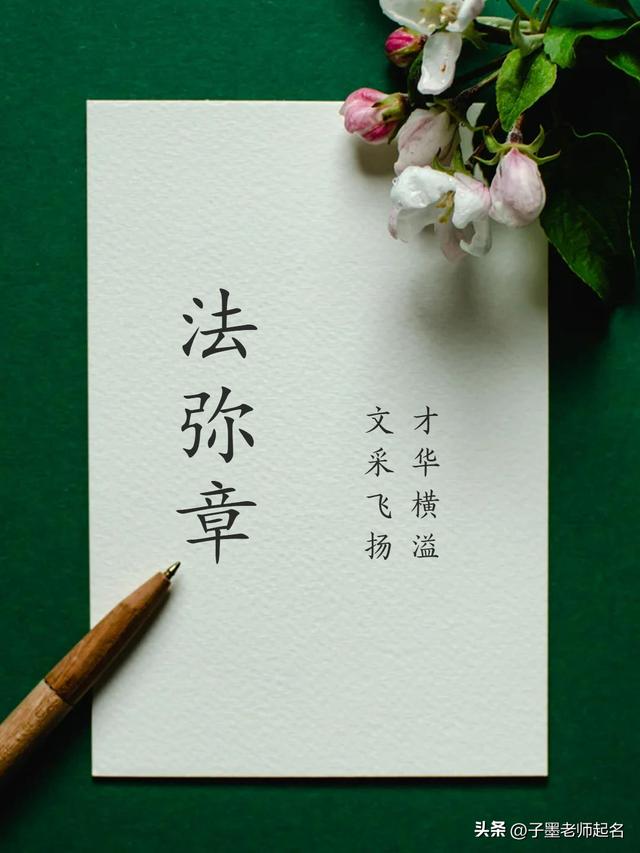 法弥章
才华横溢
文采飞扬
头条 @子墨老师起名